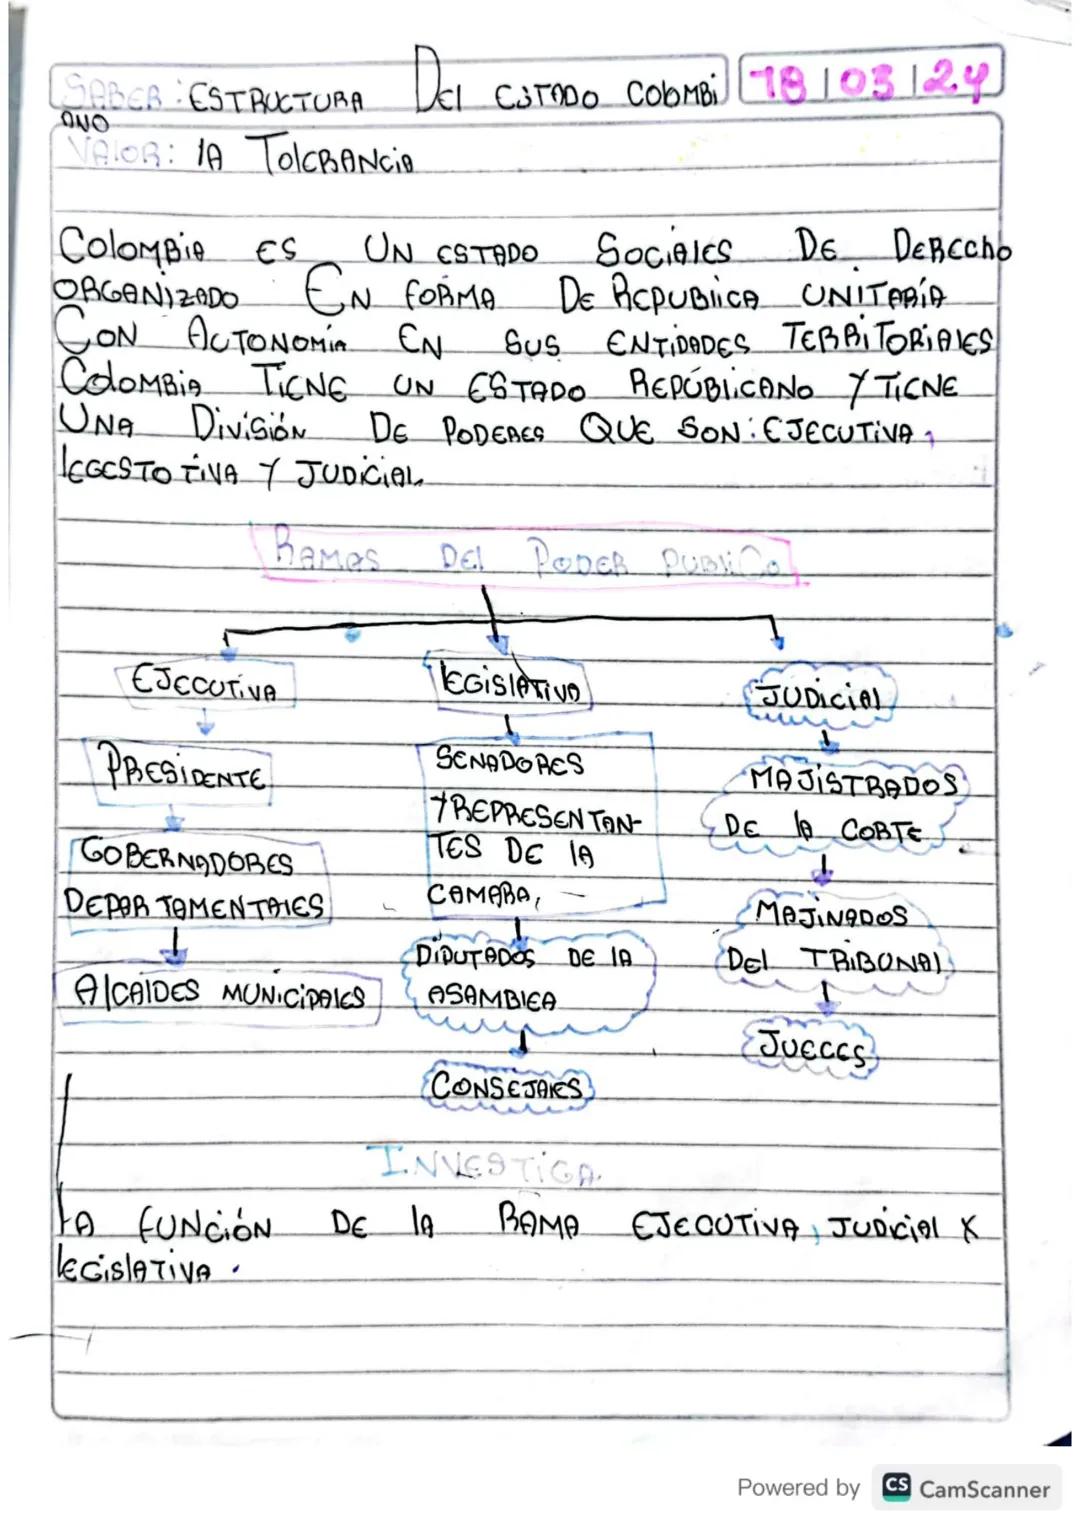 SABER: ESTRUCTURA DEl ESTADO COlOMBi 18/03/24
ANO
VAlOR: lA TOlERANCiA
COlOMBiA ES UN ESTADO SOCiAlES DE DERECHO
ORGANiZADO EN FORMA DE REPUBliCA UNiTARíA
CON AUTONOMíA EN SUS ENTiDADES TERRiTORiAlES
COlOMBiA TiENE UN ESTADO REPÚBliCANO Y TiENE
UNA DiViSiÓN DE PODERES QUE SON: EJECUTiVA,
lEGESTOTiVA Y JUDiCiAl.
RAMAS DEl PODER PUBliCO
EJECUTiVA lEGiSlATiVO JUDiCiAl
PRESiDENTE SENADORES MAJiSTRADOS
Y REPRESENTAN- DE lA CORTE
GOBERNADORES TES DE lA
DEPARTAMENTAlES CAMARA, MAJiNADOS
DiPUTADOS DE lA DEl TRiBUNAl
AlCAlDES MUNiCiPAlES ASAMBlEA
JUECES
CONSEJAlES
INVESTiGA.
lA FUNCiÓN DE lA RAMA EJECUTiVA, JUDiCiAl Y
lEGiSlATiVA.
Powered by CS CamScanner